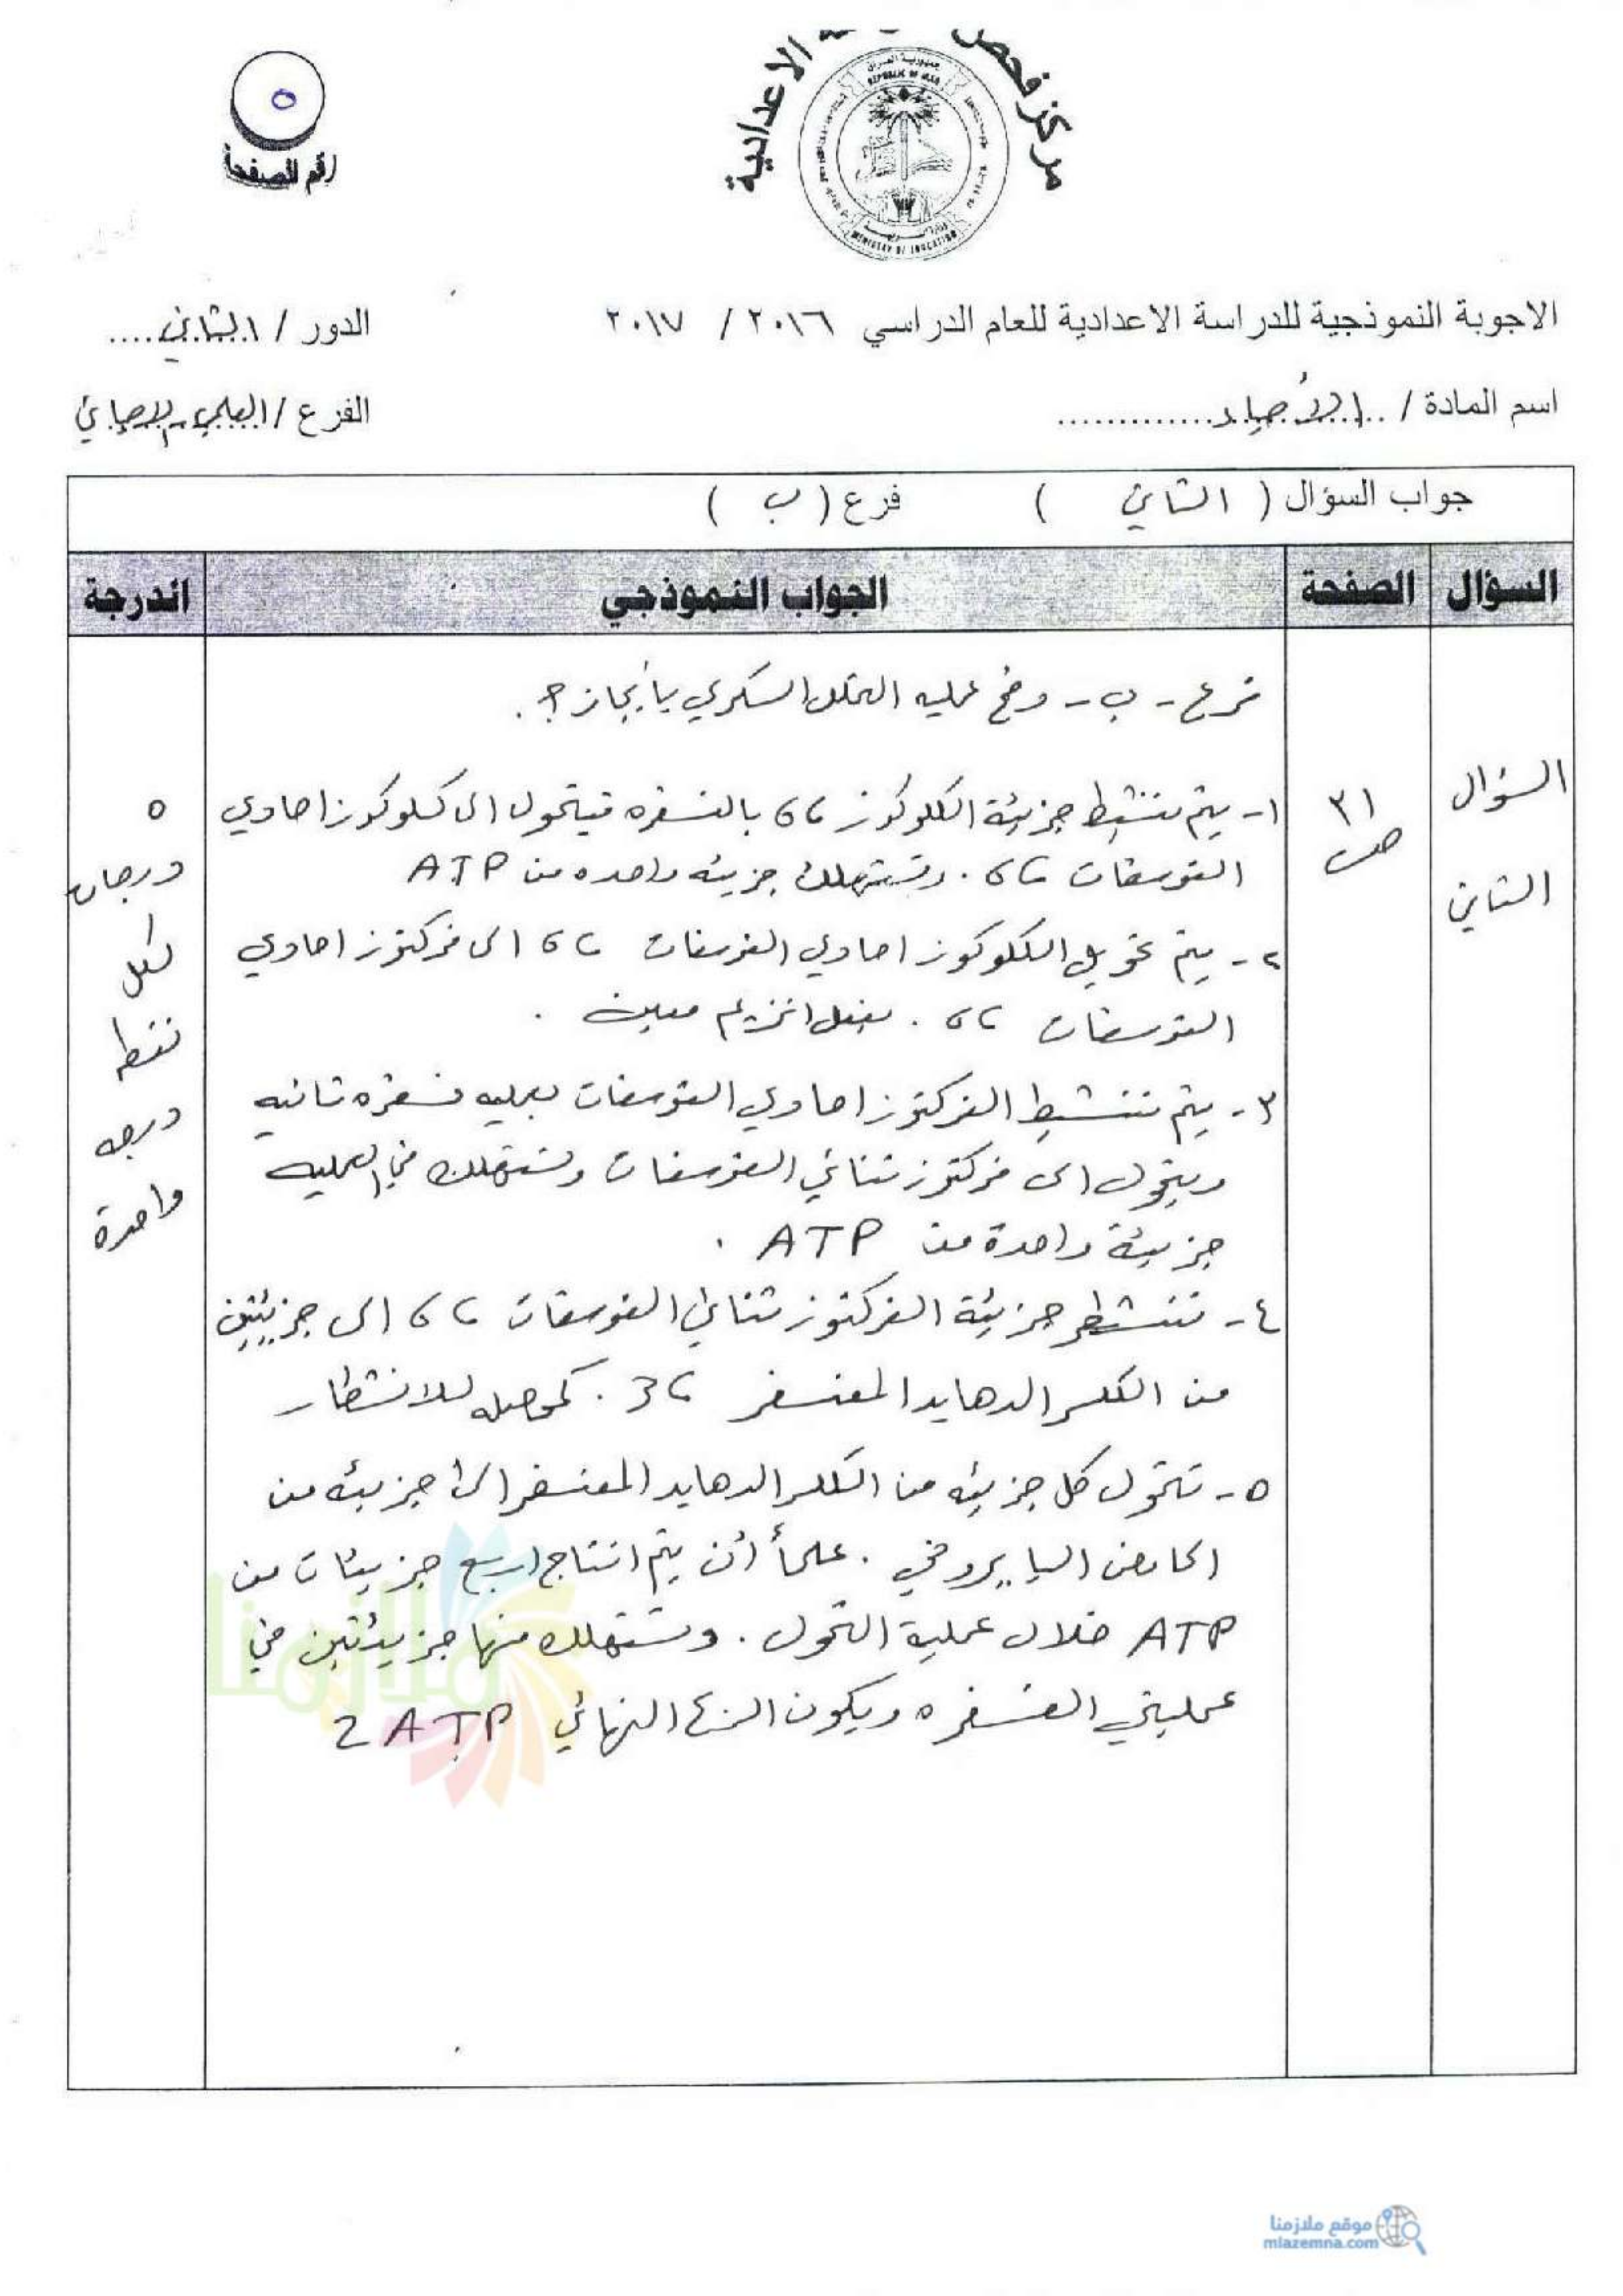 مركز فحص الاعدادية
جمهورية العراق
REPUBLIC OF IRAQ
MINISTRY OF EDUCATION
٥
رقم الصفحة
الاجوبة النموذجية للدراسة الاعدادية للعام الدراسي ٢٠١٦ / ٢٠١٧
الدور / الثاني....
اسم المادة / ..الأحياء.............
الفرع / العلمي-الاحيائي
جواب السؤال ( الثاني ) فرع ( ب )
السؤال الصفحة الجواب النموذجي الدرجة
فرع - ب - وضح عمليه التحلل السكري بأيجاز؟.
السؤال
الثاني
٣١
ص
١- يتم تنشيط جزيئة الكلوكوز 6C بالفسفره فيتحول الى كلوكوز احادي
الفوسفات 6C . وتستهلك جزيئه واحده من ATP
٢- يتم تحويل الكلوكوز احادي الفوسفات 6C الى فركتوز احادي
الفوسفات 6C . بفعل انزيم معين .
٣- يتم تنشيط الفركتوز احادي الفوسفات بعمليه فسفره ثانيه
ويتحول الى فركتوز ثنائي الفوسفات وتستهلك في العمليه
جزيئة واحدة من ATP .
٤- تنشطر جزيئة الفركتوز ثنائي الفوسفات 6C الى جزيئين
من الكلسرالدهايد المفسفر 3C . كمحصله للانشطار
٥- تتحول كل جزيئه من الكلسرالدهايد المفسفر الى جزيئه من
الحامض البايروفي . علماً أن يتم انتاج اربع جزيئات من
ATP خلال عملية التحول . وتستهلك منها جزيئتين في
عمليتي الفسفره ويكون الناتج النهائي 2 ATP
٥
درجات
لكل
نقطه
درجه
واحدة
ملازمنا
موقع ملازمنا
mlazemna.com